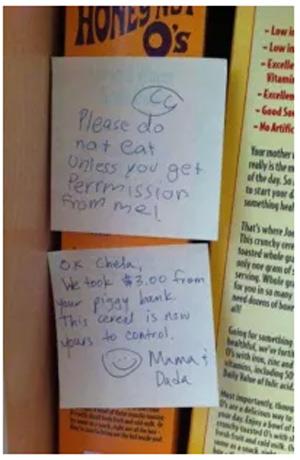 HONEY NUT
O's
Please do
not eat
Unless you get
Perrmission
From me!
OK Chela,
We took $3.00 from
your piggy bank.
This cereal is now
yours to control.
Mama +
Dada
- Low in
- Low in
- Excelle
Vitamin
- Excellen
- Good So
- No Artific
Your mother
really is the m
of the day. So
to start your d
something heal
That's where Joe
This crunchy cere
toasted whole gra
only one gram of s
serving. Whole gra
for you in so many
need dozens of bowe
all!
Going for something
healthful, we've forti
O's with iron, zinc and
vitamins, including 50
Daily Value of folic acid.
Most importantly, though
O's are a delicious way to
your day. Enjoy a bowl of
crunchy toasted O's with s
fresh fruit and cold milk. Or
some as a snack, right